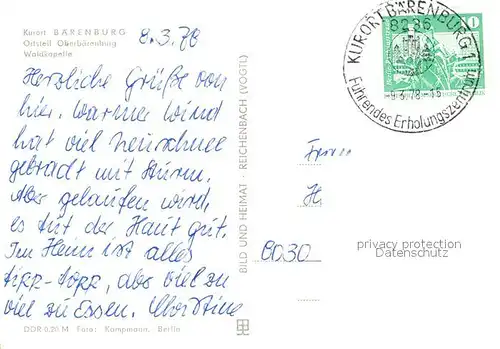 Kurort BÄRENBURG
Ortsteil Oberbärenburg
Waldkapelle
8.3.78
Herzliche Grüße von
hier. Warmer Wind
hat viel Neuschnee
gebracht mit Sturm.
Aber gelaufen wird,
es tut der Haut gut.
Im Heim ist alles
tipp-topp, aber viel zu
viel zu Essen. Christine
DDR 0,20 M Foto: Kampmann, Berlin
BILD UND HEIMAT · REICHENBACH (VOGTL)
KURORT BÄRENBURG 1
8236
-9.3.78-15
Führendes Erholungszentrum
10
H.
8030
privacy protection
Datenschutz